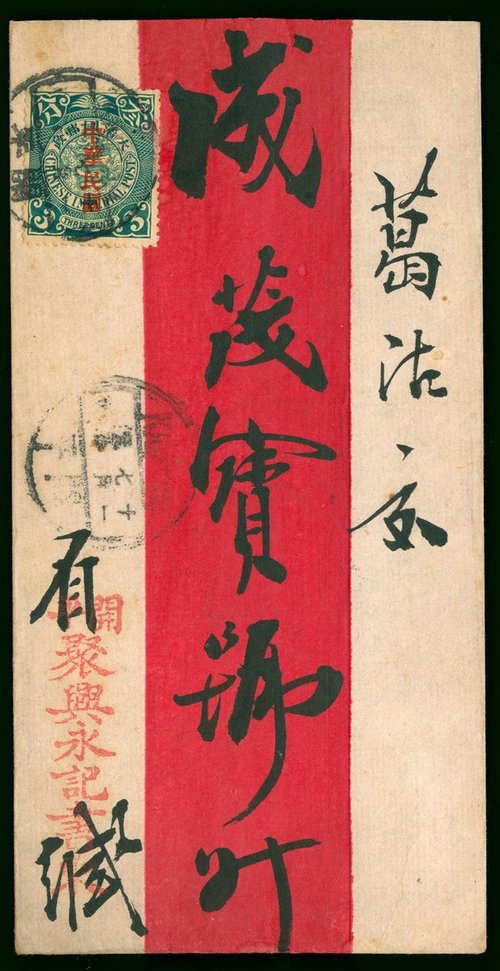 葛沽
成茂寶號升
有緘
聚興永記書
開
中華民國
CHINESE IMPERIAL POST
THREE CENTS
3 3